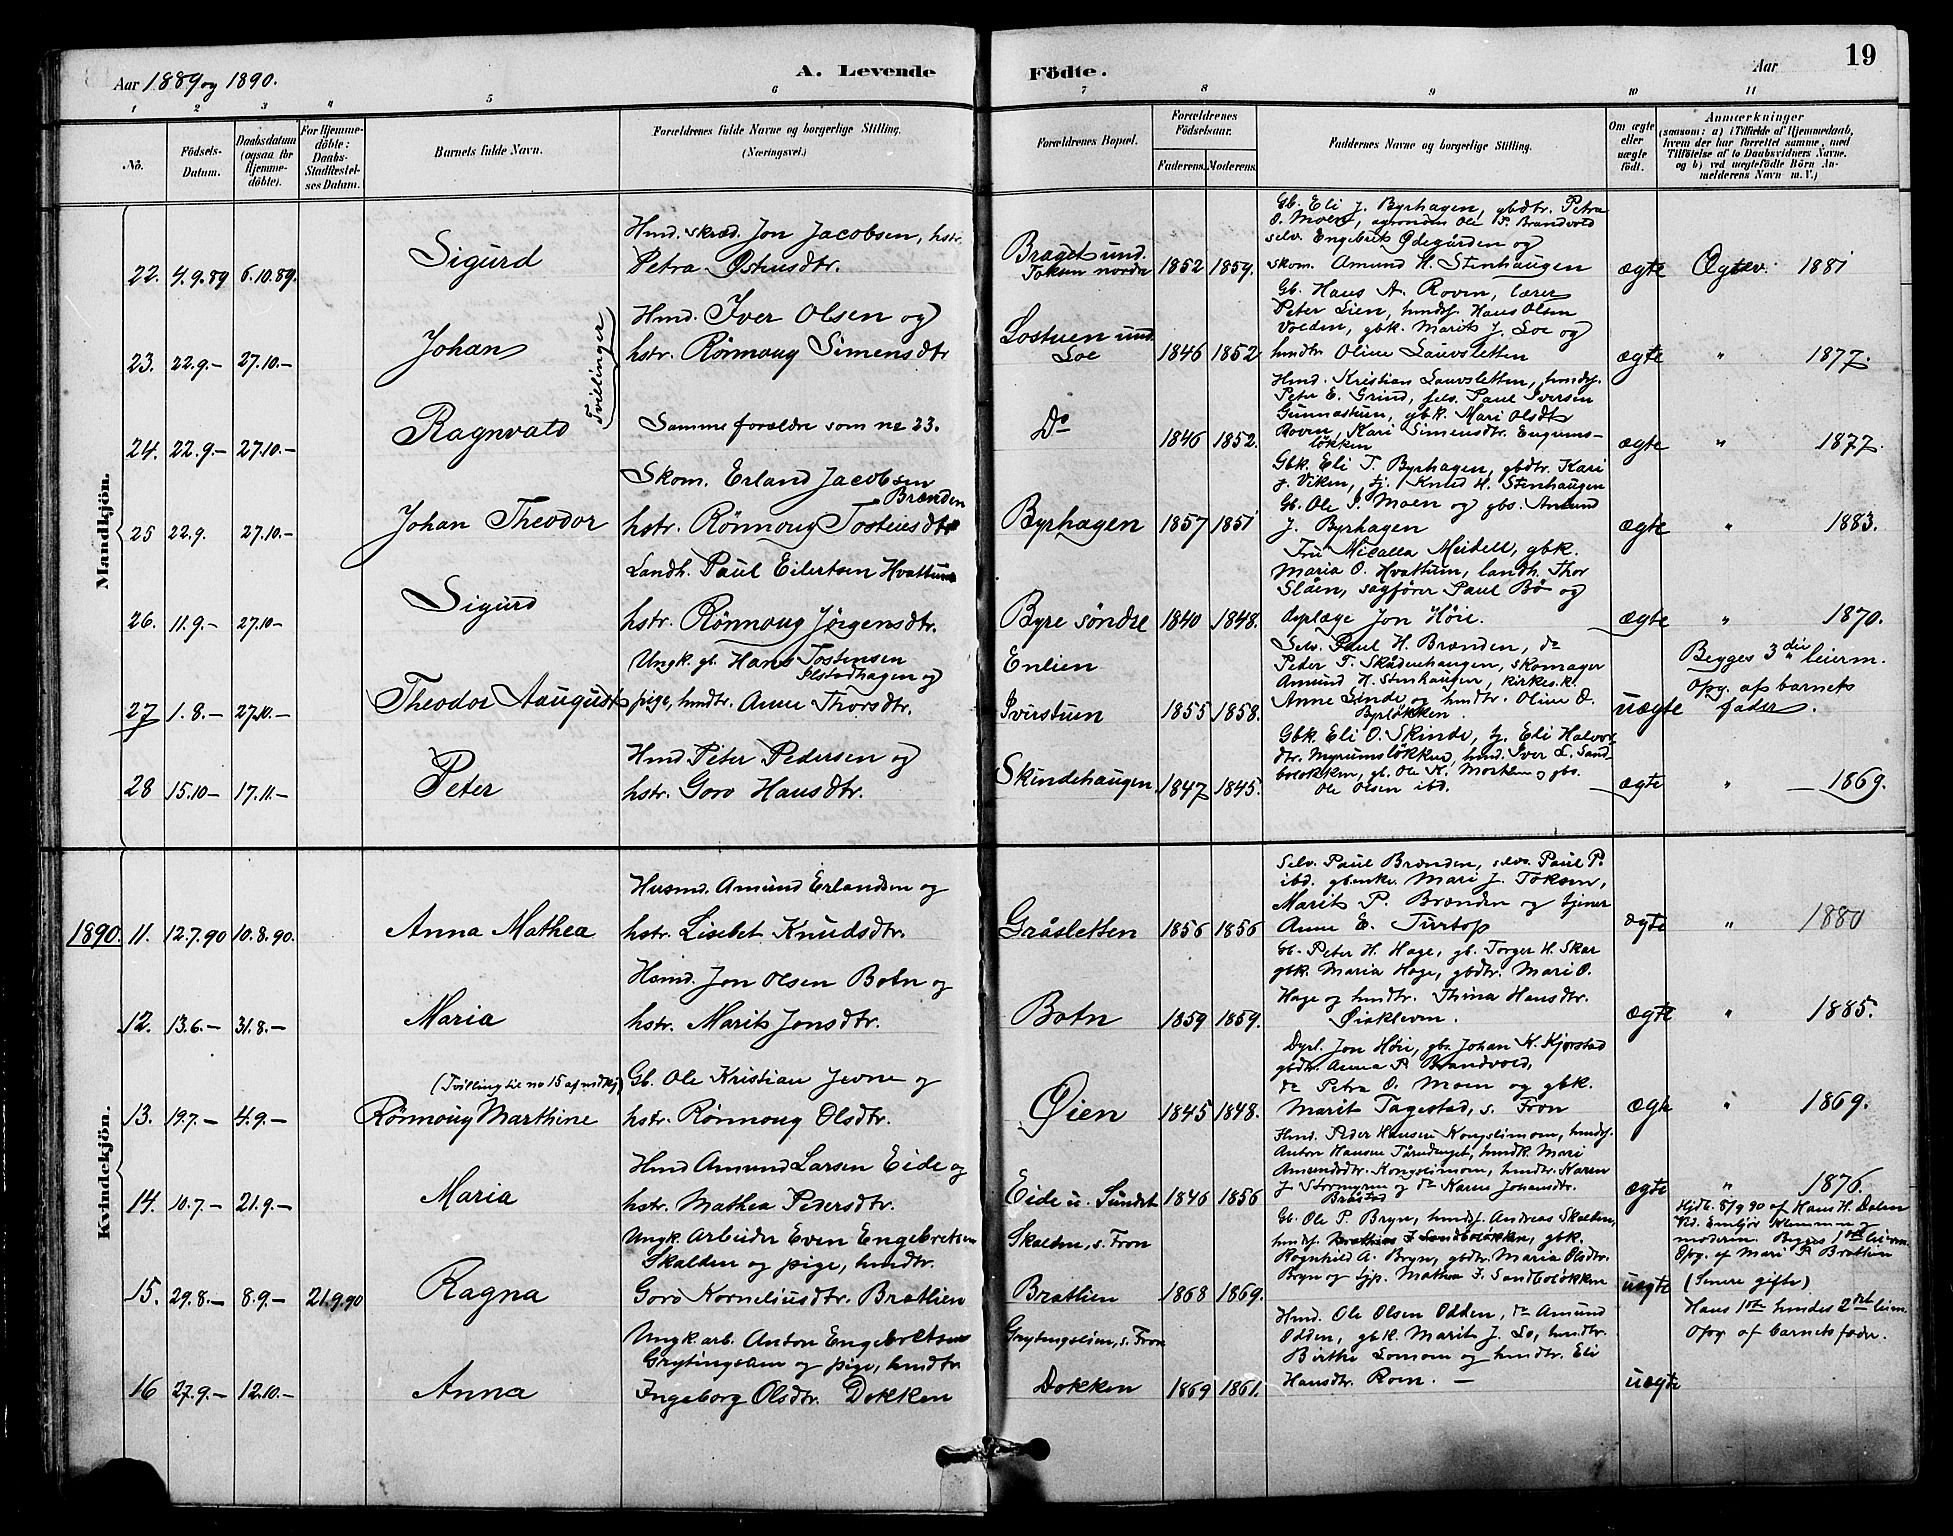 Aar 1889 og 1890.
A. Levende Födte.
Aar
19
1 2 3 4 5 6 7 8 9 10 11
No.
Födsels-Datum.
Daabsdatum (ogsaa for Hjemme-döbte).
For Hjemme-döbte: Daabs-Stadfæstel-ses Datum.
Barnets fulde Navn.
Forældrenes fulde Navne og borgerlige Stilling. (Næringsvei.)
Forældrenes Bopæl.
Forældrenes Födselsaar.
Faderens. Moderens.
Faddernes Navne og borgerlige Stilling.
Om ægte eller uægte födt.
Anmærkninger (saasom: a) i Tilfælde af Hjemmedaab, hvem der har forrettet samme, med Tilföielse af to Daabsvidners Navne, og b) ved uægtefödte Börn An-melderens Navn m. V.)
Mandkjön.
22. 4.9.89 6.10.89. Sigurd
Hmd. skræd. Jon Jacobsen, hstr.
Petra Østensdtr.
Braget und.
Tokun nordre
1852 1859.
Gb. Eli J. Byrhagen, gbdtr. Petra
O. Moen, agronom Ole P. Brandvold
selv. Engebrik Ødegården og
skom. Amund H. Stenhaugen
ægte 1881
23. 22.9.– 27.10.– Johan
Tvillinger
Hmd. Iver Olsen og
hstr. Rönnoug Simensdtr
Lostuen und.
Loe
1846 1852
Gb. Hans A. Roven, lærer
Peter Lien, hmdsf. Hans Olsen
Volden, gbk. Marit J. Loe og
hmdtr Oline Lauvsletten
ægte " 1877.
24. 22.9– 27.10.– Ragnvald
Samme forældre som no 23.
Do
1846 1852.
Hmd. Kristian Lauvsletten, hmdsf.
Peter E. Grind, selv. Paul Iversen
Gunnastuen, gbk. Mari Olsdtr
Roven, Kari Simensdtr. Engums-
løkken
ægte " 1877.
25 22.9. 27.10.– Johan Theodor
Skom. Erland Jacobsen
Brænden
hstr. Rönnoug Tosteinsdtr
Byrhagen
1857 1851
Gbk. Eli T. Byrhagen, gbdtr. Kari
J. Viken, tj. Knud H. Stenhaugen
Gb. Ole I. Moen og gbs. Amund
J. Byrhagen
ægte " 1883.
26. 11.9– 27.10– Sigurd
Landh. Paul Eilertsen Hvattum
hstr. Rönnoug Jørgensdtr.
Byre söndre
1840 1848.
Fru Micalla Meidell, gbk.
Maria O. Hvattum, landh. Thor
Slåen, sagfører Paul Bö og
dyrlæge Jon Höie.
ægte " 1870.
27 1.8.– 27.10.– Theodor August
Ungk. gb. Hans Tostensen
Ilstadhagen og
pige, hmdtr. Anne Thorsdtr.
Enlien
Ivirstuen
1855 1858.
Selv. Paul H. Brænden, do
Peder T. Skådeehaugen, skomager
Amund H. Stenhaugen, kirkes. k.
Anne Linde og hmdtr. Oline O.
Byrløkken.
uægte
Begges 3die leierm.
Opg. af barnets
fader.
28 15.10– 17.11.– Peter
Hmd Peter Pedersen og
hstr. Goro Hansdtr.
Skindehaugen
1847 1845.
Gbk. Eli O. Skinde, tj. Eli Halvor-
dtr. Myrumsløkken, hmd. Iver L. Sand-
boløkken, gb. Ole K. Mortlem og gbs.
Ole Olsen ibd.
ægte " 1869.
1890.
Kvindekjön.
11. 12.7.90 10.8.90. Anna Mathea
Husmd. Amund Erlandsen og
hstr. Lisebet Knudsdtr.
Gråsletten
1856 1856
Selv. Paul Brænden, selvs. Paul P.
ibd. gbenke. Mari J. Toksen,
Marit P. Brænden og tjener
Anne E. Turtop
ægte " 1880
12. 13.6.– 31.8.– Maria
Hsmd. Jon Olsen Botn og
hstr. Marit Jonsdtr.
Botn
1859 1859.
Gb. Peter H. Hage, gb. Torger H. Skar
gbk. Maria Hage, gbdtr. Mari O.
Hage og hmdtr. Stina Hansdtr.
ægte " 1885.
13. 19.7.– 4.9.–
(Tvilling til no 15 af mdkj.)
Rönnoug Marthine
Gb. Ole Kristian Jevne og
hstr. Rönnoug Olsdtr.
Øien
1845 1848.
Dyrl. Jon Höie, gbs. Johan K. Kjorstad
gbdtr. Anna P. Brandvold,
do Petra O. Moen og gbk.
Marit Tagestad, s. Fron
ægte " 1869.
14. 10.7.– 21.9.– Maria
Hmd Amund Larsen Eide og
hstr. Mathea Pedersdtr.
Eide u. Sundet
1846 1856
Hmd. Peder Hansen Kongslimoen, hmdsf.
Anton Hansen Tårudeiget, hmdk Mari
Amundsdtr. Kongslimoen, hmdtr. Karen
J. Stormyren og do Karen Johansdtr.
Bråstad
ægte " 1876.
15. 29.8.– 8.9.– 21.9.90 Ragna
Ungk. Arbeider Even Engebretsen
Skalden og pige, hmdtr.
Goro Korneliusdtr. Brattien
Skalden, s. Fron
Brattien
1868 1869.
Gb. Ole P. Bryn, hmdsf. Andreas Skalden,
hmdsf. Mathias I. Sandboløkken, gbk.
Ragnhild A. Bryn, gbdtr. Maria Olsdtr.
Bryn og tjp. Mathea I. Sandboløkken
uægte
Hjdb. 5/9 90 af Hans H. Dalen
moderen. Begges 1ste leierm.
Opg. af Mari P. Brattien
(Senere gifte)
16 27.9.– 12.10.– Anna
Ungk. arb. Anton Engebretsen
Grytingslien og pige, hmdtr
Ingeborg Olsdtr. Dokken
Grytingslien, s. Fron
Dokken
1869 1861.
Hmd. Ole Olsen Odden, do Amund
Odden, gbk. Marit J. Lo, hmdtr.
Birthe Lomoen og hmdtr. Eli
Hansdtr. Roen. –
uægte
Hans 1ste hendes 2det leierm.
Opg. af barnets fader.